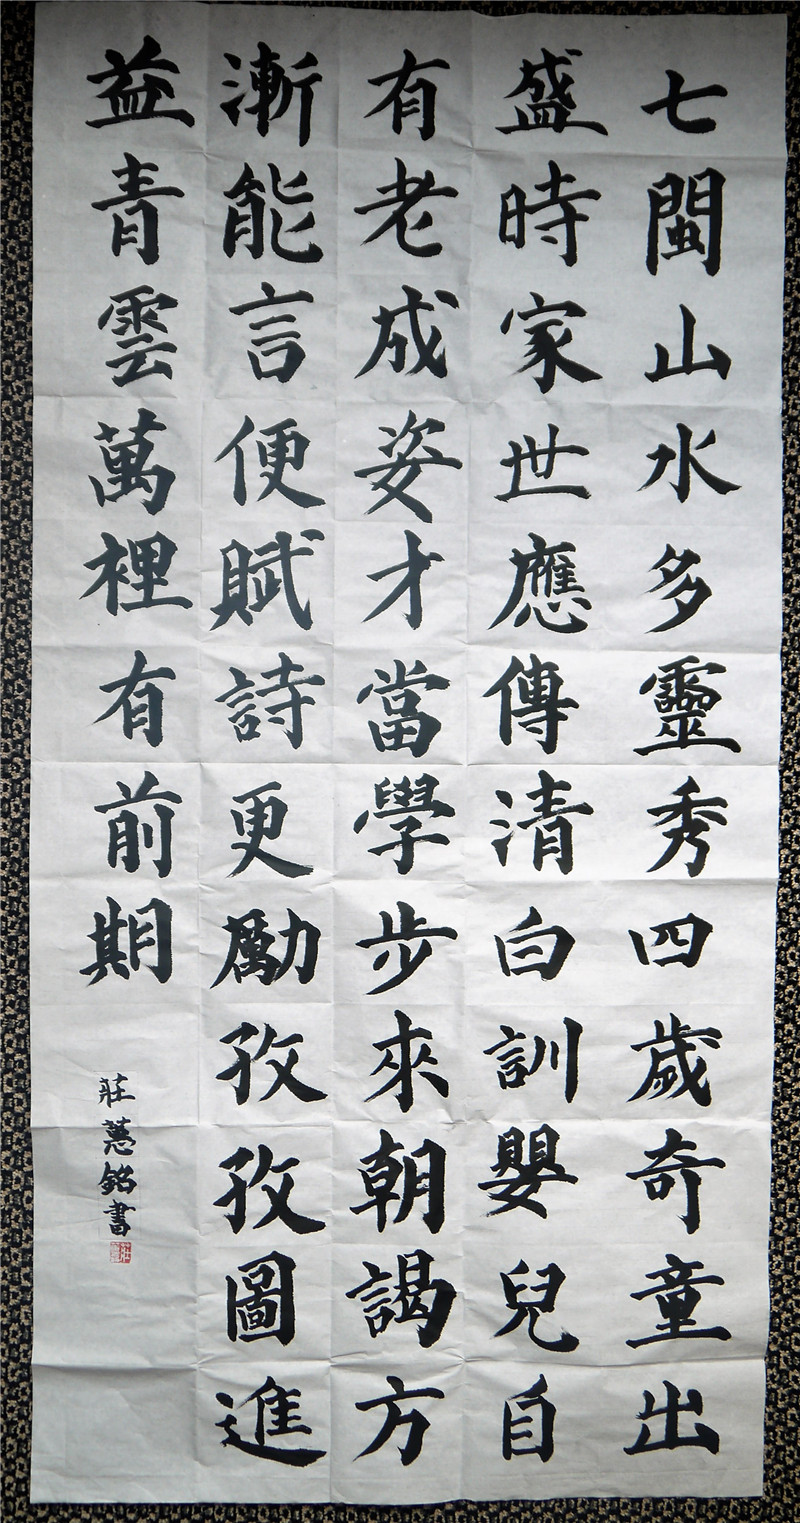 七閩山水多靈秀四歲奇童出
盛時家世應傳清白訓嬰兒自
有老成姿才當學步來朝謁方
漸能言便賦詩更勵孜孜圖進
益青雲萬裡有前期
莊慧銘書